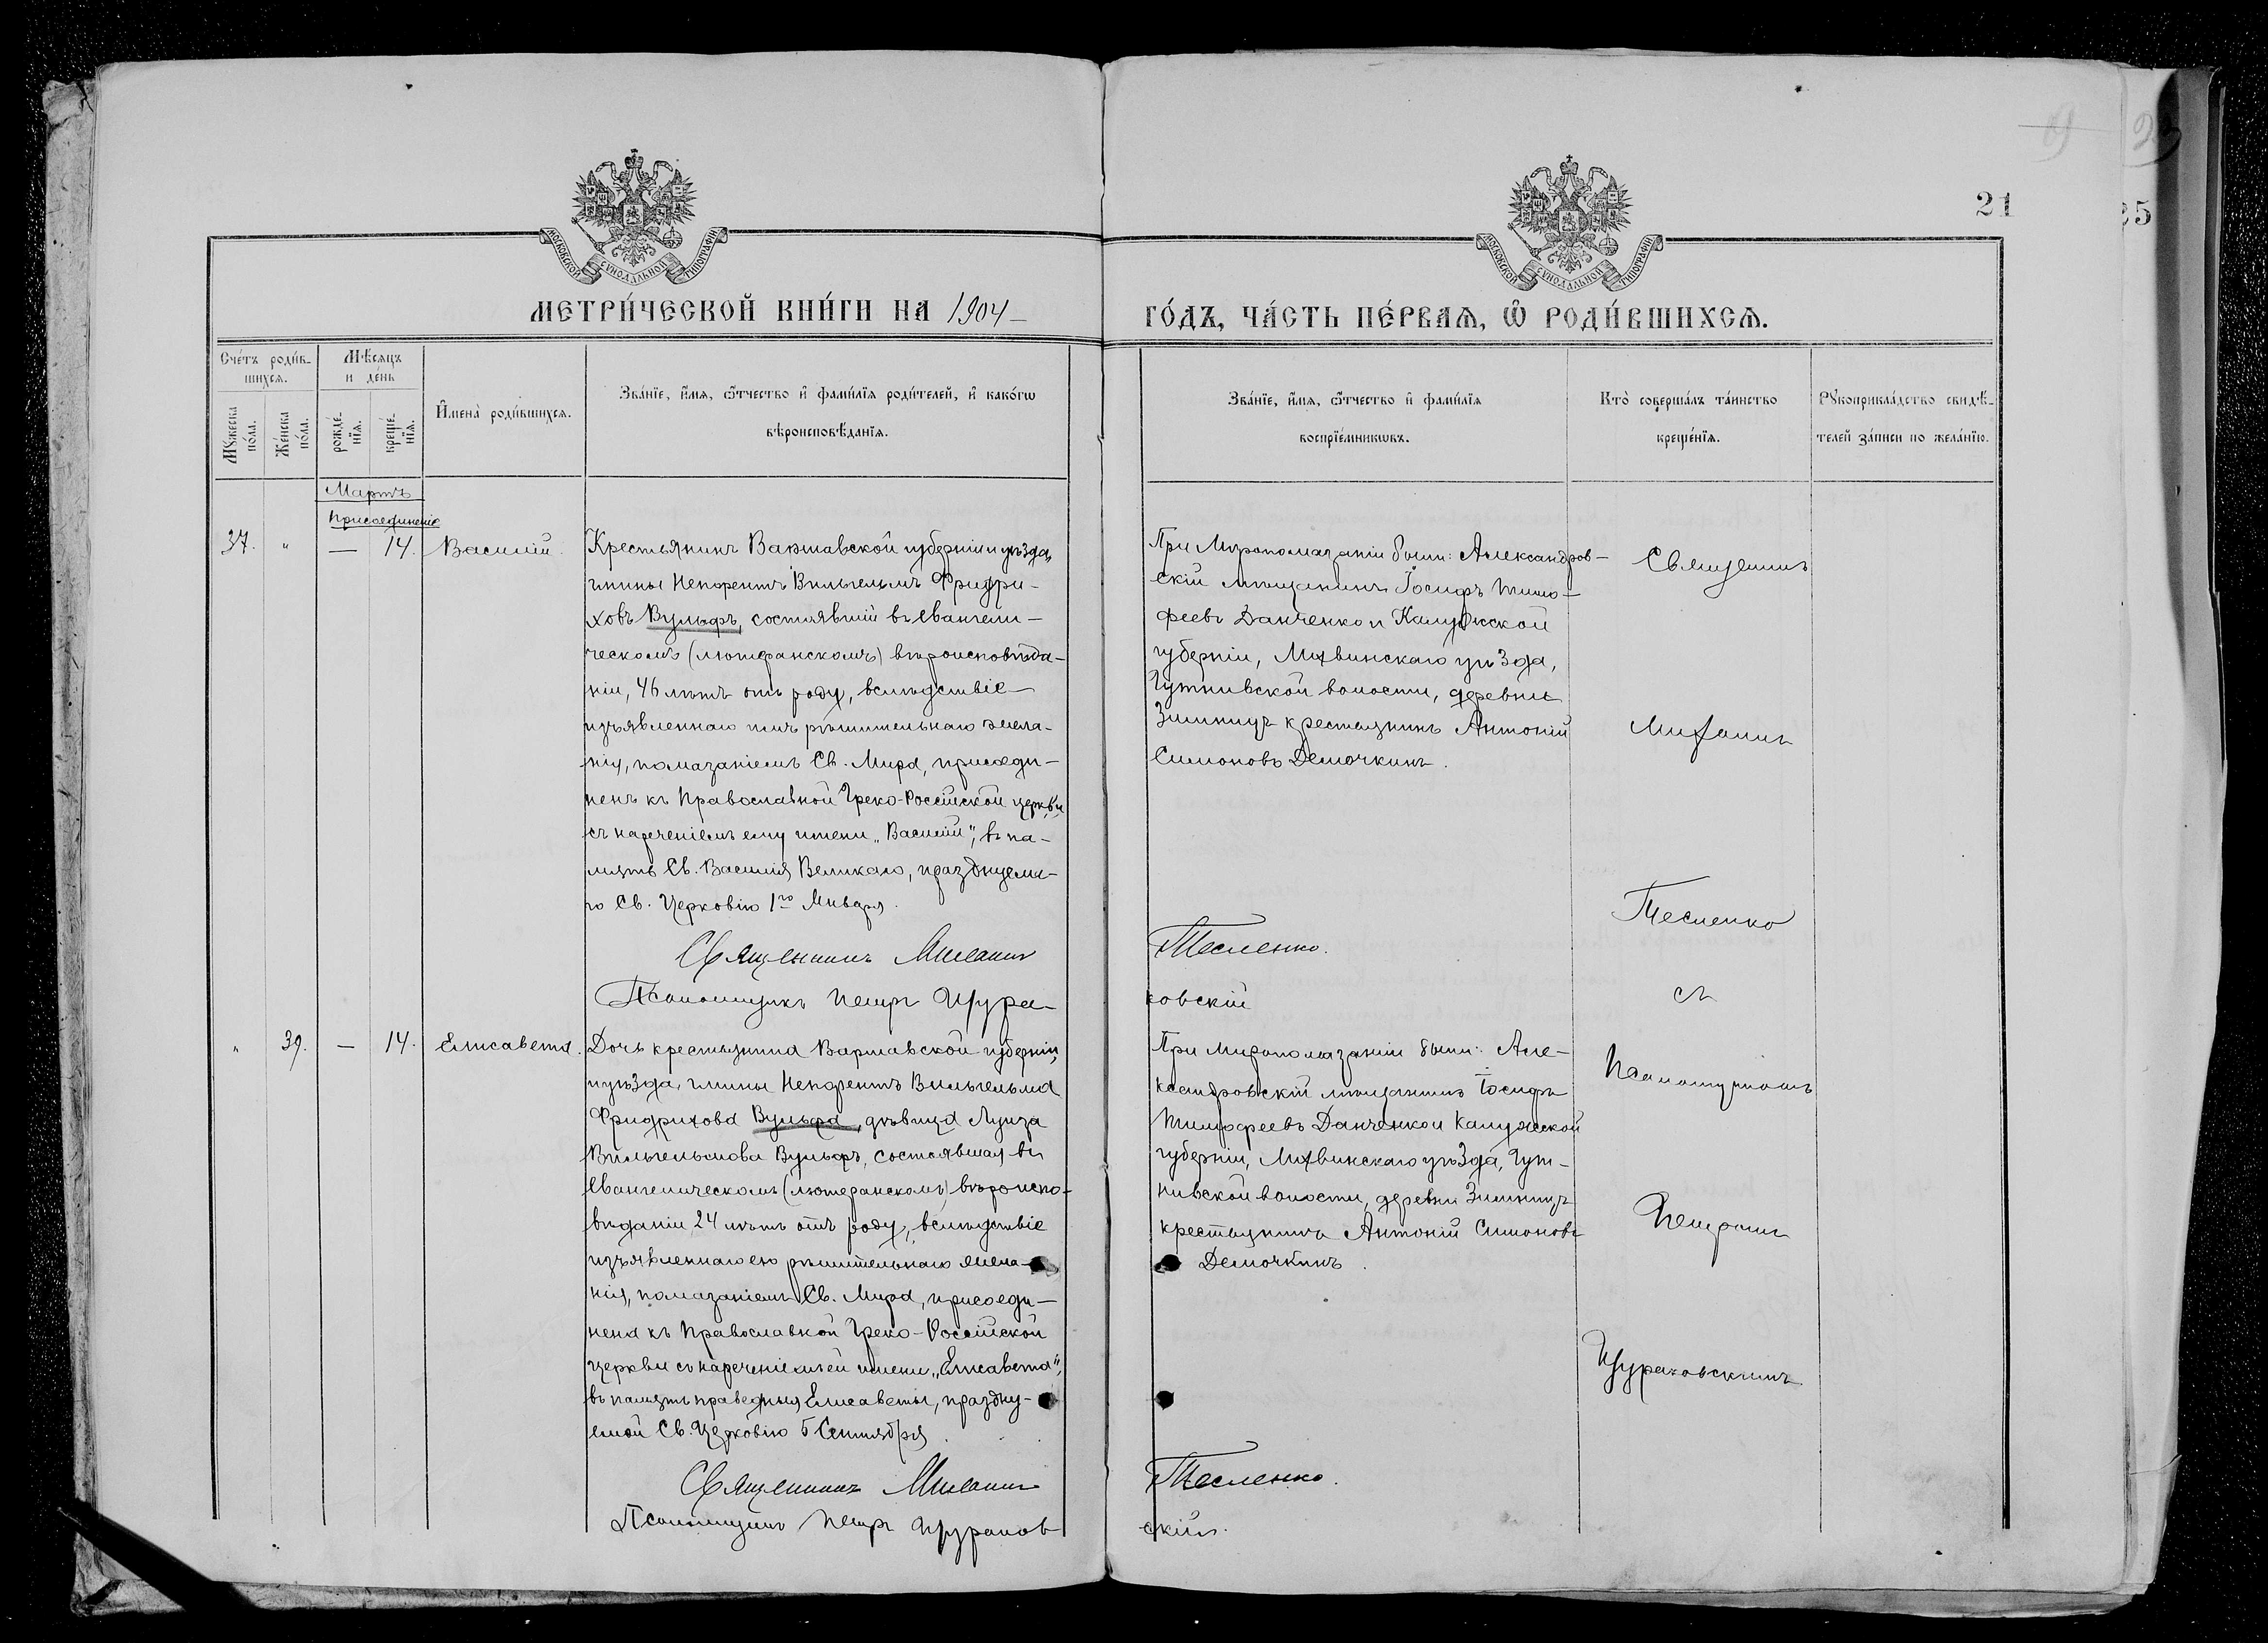 21
25
МОСКОВСКОЙ СѴНОДАЛЬНОЙ ТИПОГРАФІИ
МОСКОВСКОЙ СѴНОДАЛЬНОЙ ТИПОГРАФІИ
МЕТРИ́ЧЕСКОЙ КНИ́ГИ НА 1904
ГО́ДЪ, ЧА́СТЬ ПЕ́РВАѦ, Ѡ҆ РОДИ́ВШИХСѦ.
Сче́тъ роди́в-
шихсѧ.
Мѣ́сѧцъ
и де́нь
Мꙋ́жеска
по́ла.
Же́нска
по́ла.
рожде́-
нїѧ.
креще́-
нїѧ.
И҆мена̀ роди́вшихсѧ.
Зва́нїе, и҆́мѧ, ѻ҆́тчество и҆ фами́лїѧ роди́телей, и҆ како́гѡ
вѣроисповѣ́данїѧ.
Зва́нїе, и҆́мѧ, ѻ҆́тчество и҆ фами́лїѧ
воспрїе́мникѡвъ.
Кто̀ соверша́лъ та́инство
креще́нїѧ.
Рꙋкоприкла́дство свидѣ́-
телей за́писи по жела́нїю.
Мартъ
Присоединенiе
37. " — 14. Василій.
Крестьянинъ Варшавской губерніи и уѣзда,
гмины Непорентъ Вильгельмъ Фридри-
ховъ Вульфъ, состоявшій въ евангели-
ческомъ (лютеранскомъ) вѣроисповѣда-
ніи, 46 лѣтъ отъ роду, вслѣдствіе
изъявленнаго имъ рѣшительнаго жела-
нія, помазаніемъ Св. Мира, присоеди-
ненъ къ Православной Греко-Россійской церкви
съ нареченіемъ ему имени „Василій", въ па-
мять Св. Василія Великаго, празднуема-
го Св. Церковію 1го Января.
Священникъ Михаилъ
Псаломщикъ Петръ Щура-
При Миропомазаніи были: Александров-
скій мѣщанинъ Іосифъ Тимо-
феевъ Данченко и Калужской
губерніи, Лихвинскаго уѣзда,
волости, деревни
Зимницъ крестьянинъ Антоній
Симоновъ Демочкинъ.
Тесленко.
ковскій
Священникъ
Михаилъ
Тесленко
съ
" 39. — 14. Елисавета.
Дочь крестьянина Варшавской губерніи
и уѣзда, гмины Непорентъ Вильгельма
Фридрихова Вульфа, дѣвица Луиза
Вильгельмова Вульфъ, состоявшая въ
Евангелическомъ (лютеранскомъ) вѣроиспо-
вѣданіи 24 лѣтъ отъ роду, вслѣдствіе
изъявленнаго ею рѣшительнаго жела-
нія, помазаніемъ Св. Мира, присоеди-
нена къ Православной Греко-Россійской
церкви съ нареченіемъ ей имени „Елисавета",
въ память праведныя Елисаветы, праздну-
емой Св. Церковію 5 Сентября.
Священникъ Михаилъ
Псаломщикъ Петръ Щураков-
При Миропомазаніи были: Але-
ксандровскій мѣщанинъ Іосифъ
Тимофеевъ Данченко и Калужской
губерніи, Лихвинскаго уѣзда,
волости, деревни Зимницъ
крестьянинъ Антоній Симоновъ
Демочкинъ.
Тесленко.
скій.
Псаломщикомъ
Петромъ
Щураковскимъ